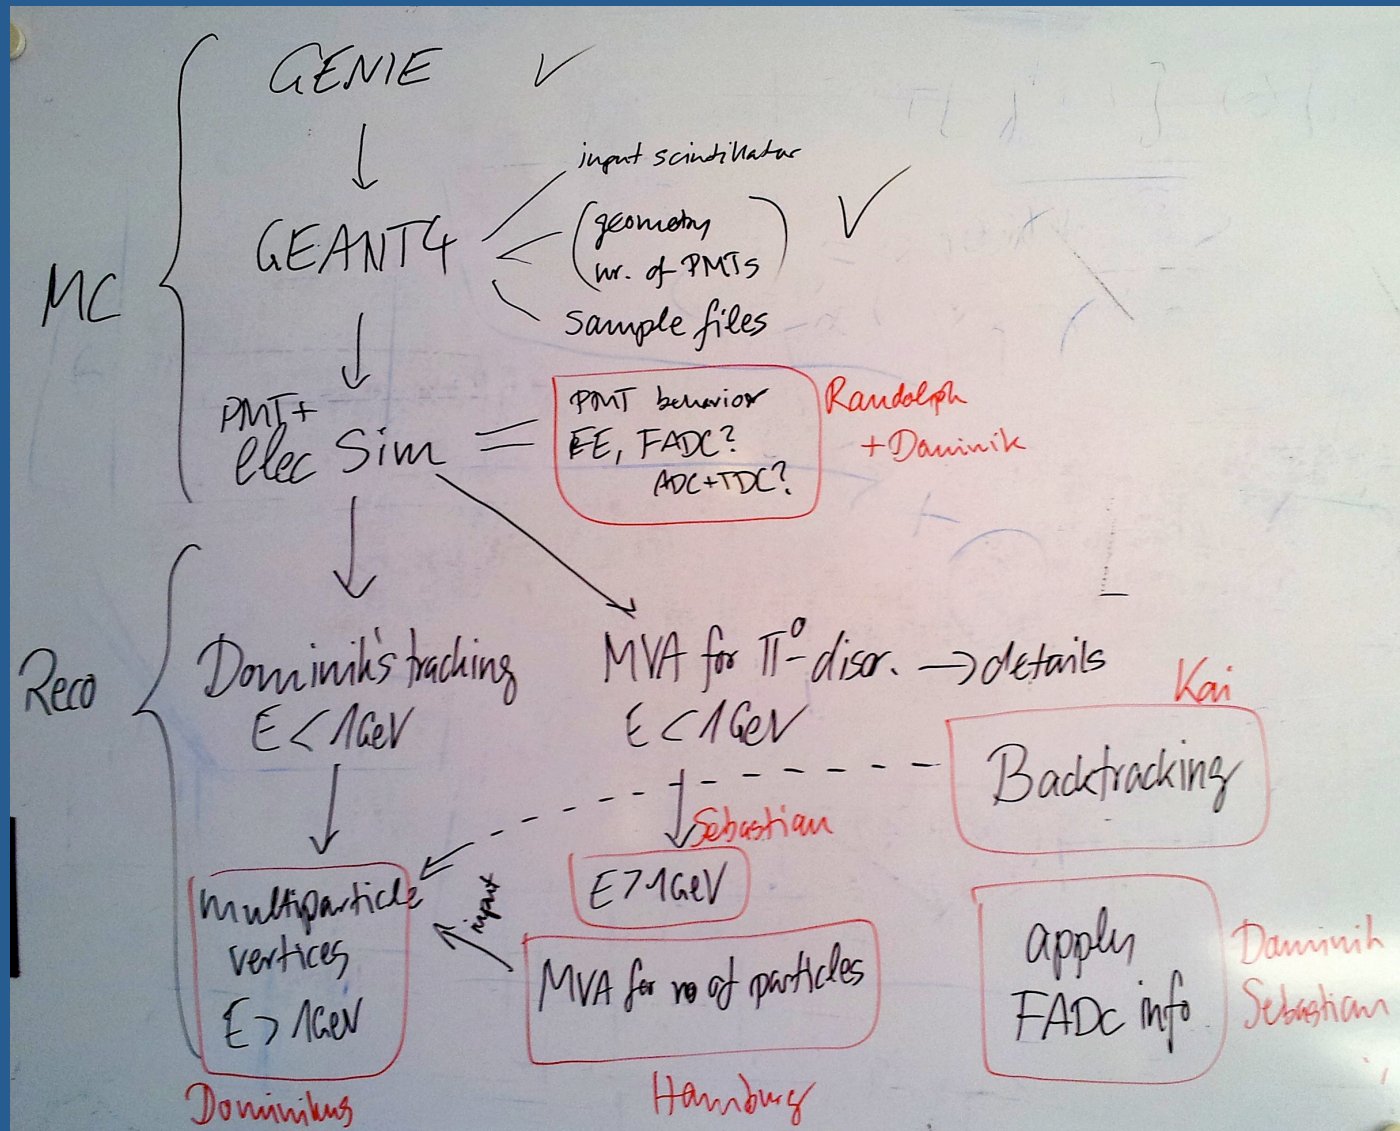 GENIE ✓
input scintillator
GEANT4
(geometry
nr. of PMTs) ✓
sample files
MC
PMT+
elec Sim =
PMT behavior
EE, FADC?
ADC+TDC?
Randolph
+Dominik
Reco
Dominik's tracking
E < 1GeV
MVA for π⁰-discr. → details
E < 1GeV
Kai
Backtracking
Sebastian
E > 1GeV
multiparticle
vertices
E > 1GeV
input
MVA for no of particles
apply
FADC info
Dominik
Sebastian
Dominikus
Hamburg